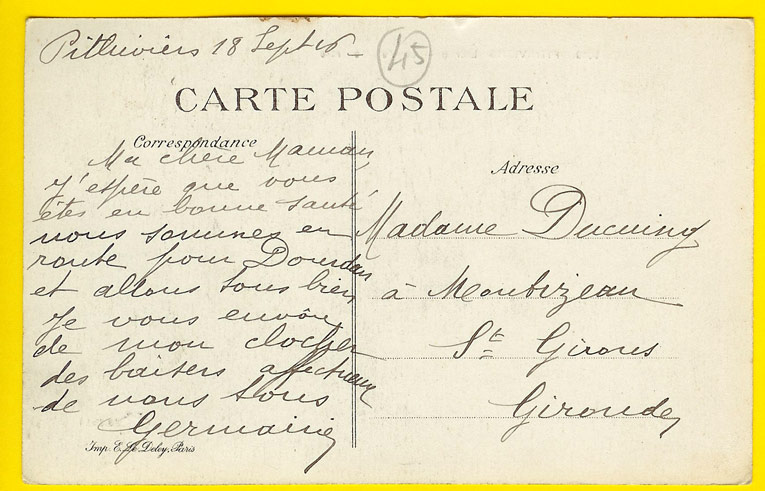 Pithiviers 18 Sept 16
45
CARTE POSTALE
Correspondance
Ma chère Maman,
J'espère que vous
êtes en bonne santé
nous sommes en
route pour Dourdan
et allons tous bien
Je vous envoi
de mon clocher
des baisers affectueux
de nous tous
Germaine
Imp. E. Le Deley, Paris
Adresse
Madame Ducuing
à Monbizeau
St Girons
Gironde